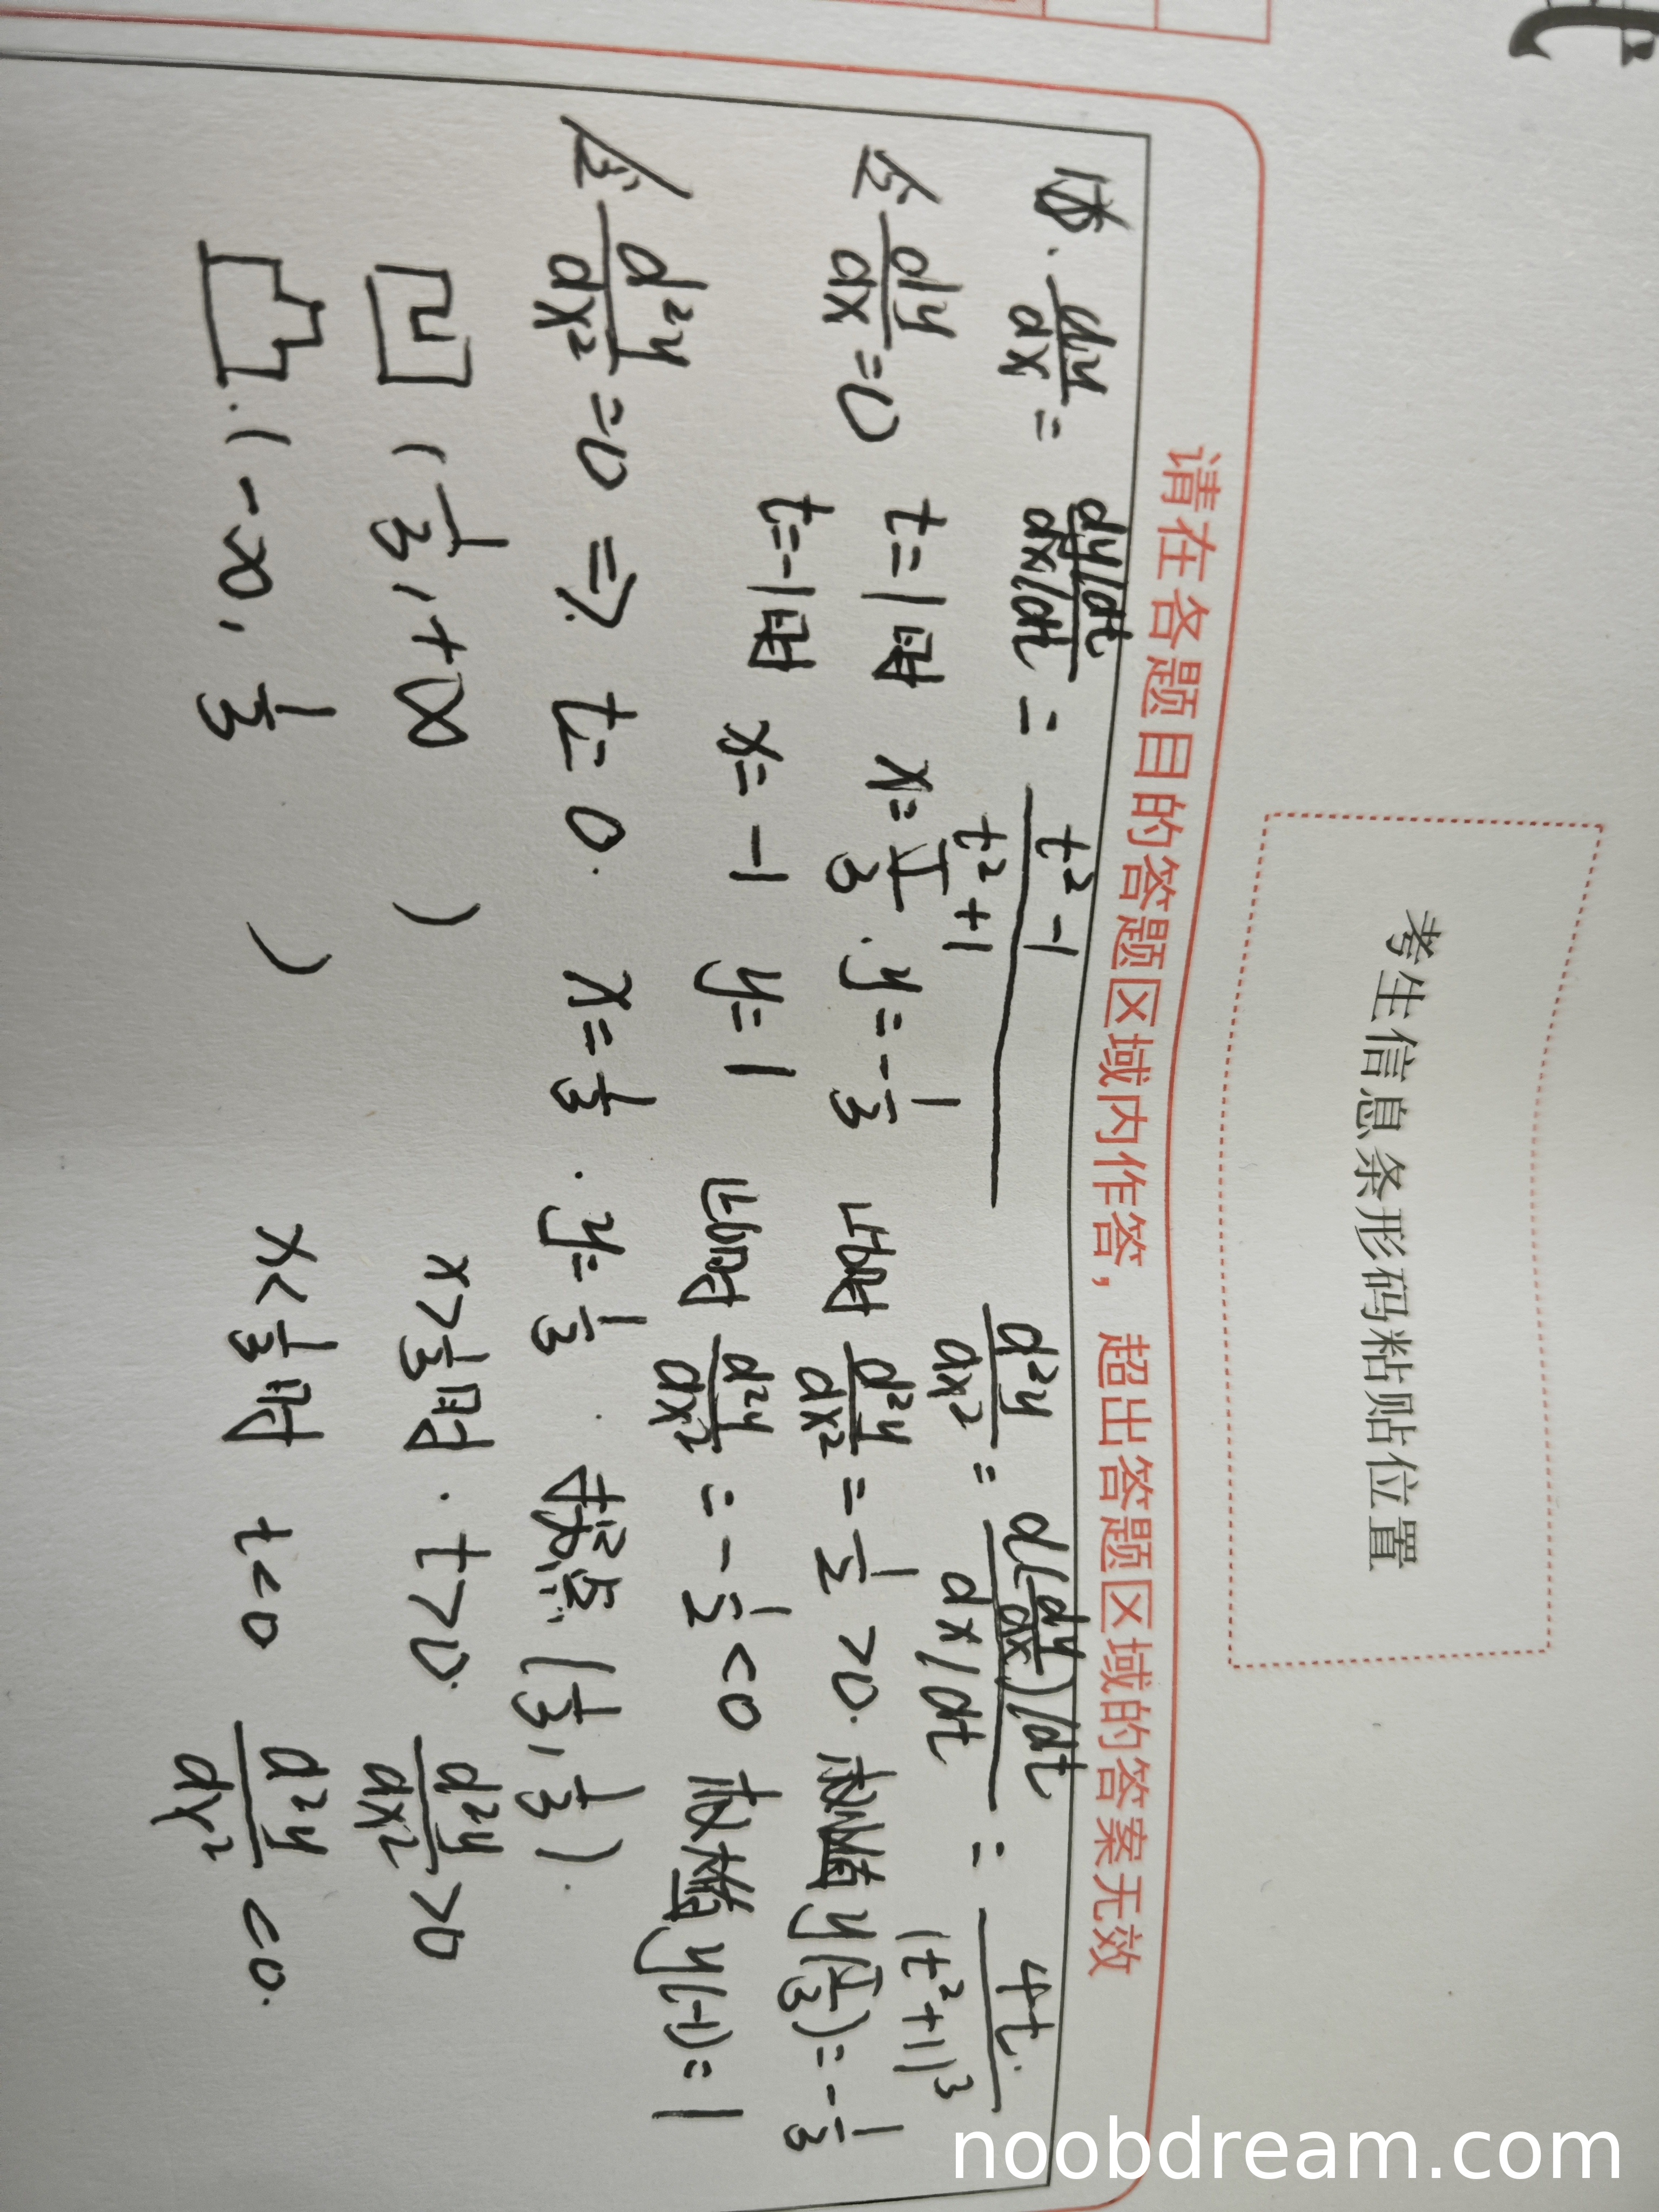 考生信息条形码粘贴位置
请在各题目的答题区域内作答，超出答题区域的答案无效
dy/dx = (dy/dt)/(dx/dt) = (t²-1)/(t²+1) d²y/dx² = (d(dy/dx)/dt)/(dx/dt) = 4t/(t²+1)³
令 dy/dx = 0 t=1时 x=5/3 . y=-1/3 此时 d²y/dx² = 1/2 >0. 极小值 y(5/3)=-1/3
t=-1时 x=-1 y=1 此时 d²y/dx² = -1/2 <0 极大值 y(-1)=1
令 d²y/dx² =0 => t=0. x=1/3 . y=1/3 . 拐点 (1/3, 1/3).
凹 (1/3, +∞ ) x>1/3时. t>0. d²y/dx² >0
凸. (-∞, 1/3 ) x<1/3时 t<0 d²y/dx² <0.
noobdream.com